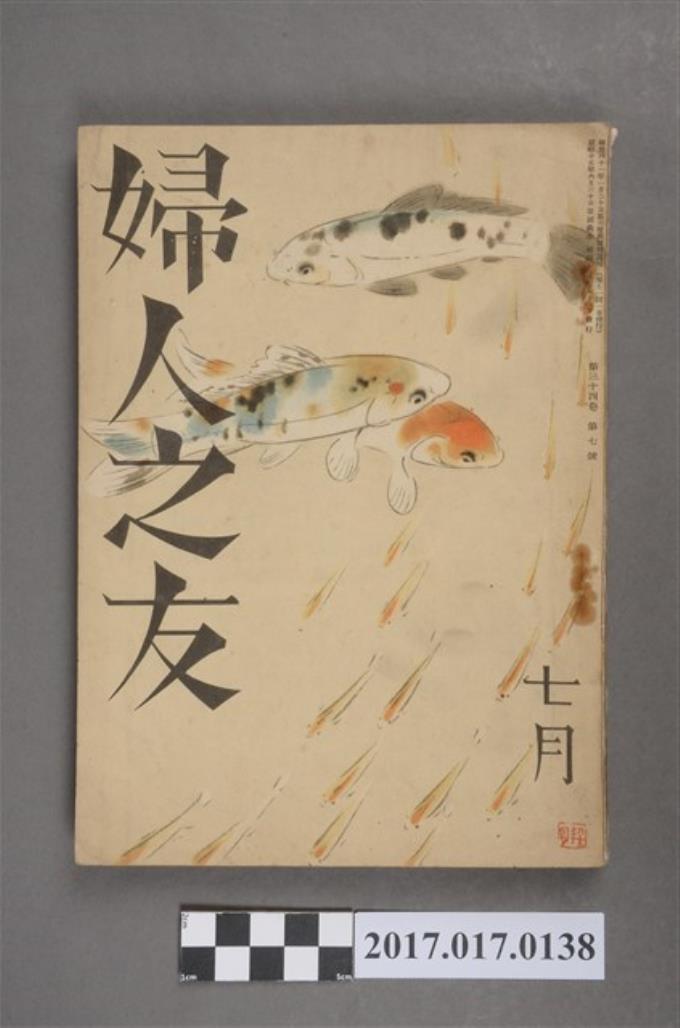 婦人之友
第三十四卷 第七號
七月
2cm
1cm
5cm
2017.017.0138